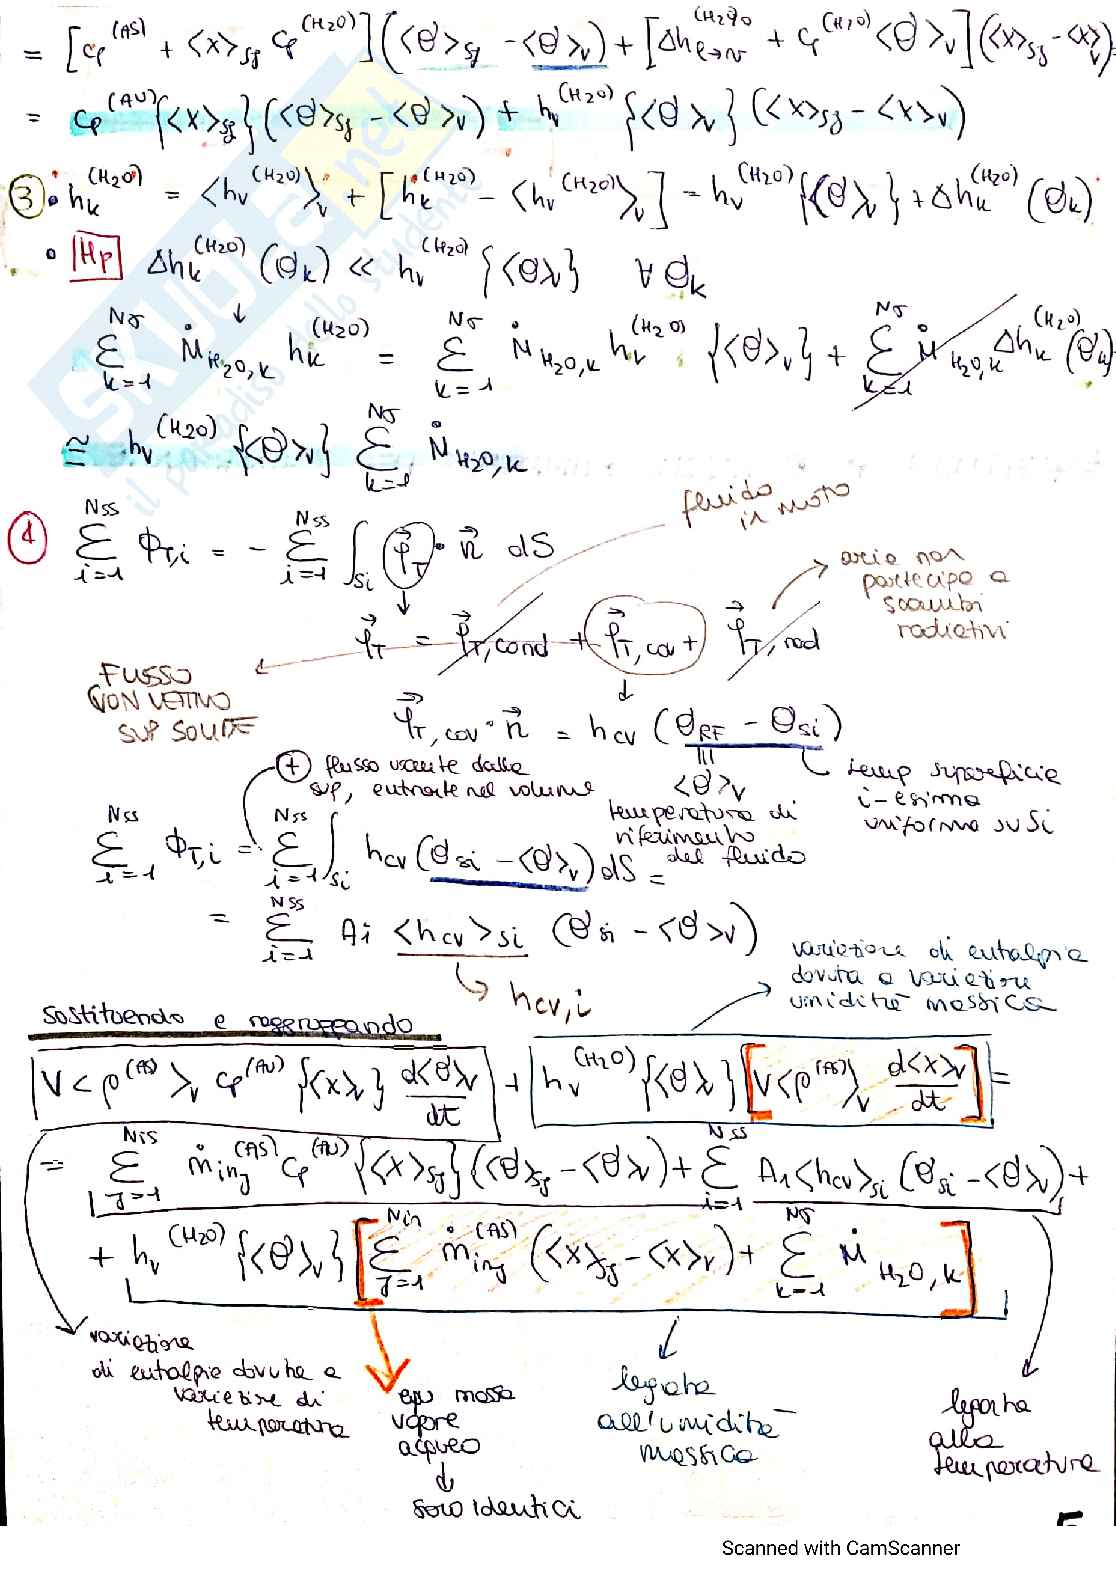 = [cp^(AS) + <x>sj cp^(H2O)] (<θ>sj - <θ>v) + [Δh^(H2O)0 l→v + cp^(H2O) <θ>v] (<x>sj - <x>v)
= cp^(AU) {<x>sj} (<θ>sj - <θ>v) + hv^(H2O) {<θ>v} (<x>sj - <x>v)
③ • hk^(H2O) = <hv^(H2O)>v + [hk^(H2O) - <hv^(H2O)>v] = hv^(H2O) {<θ>v} + Δhk^(H2O) (θk)
• Hp Δhk^(H2O) (θk) << hv^(H2O) {<θ>v} ∀ θk
↓
Σ k=1 Nσ Ṁ H2O,k hk^(H2O) = Σ k=1 Nσ Ṁ H2O,k hv^(H2O) {<θ>v} + Σ k=1 Nσ Ṁ H2O,k Δhk^(H2O) (θk)
≅ hv^(H2O) {<θ>v} Σ k=1 Nσ Ṁ H2O,k
fluido
in moto
④ Σ i=1 Nss ΦT,i = - Σ i=1 Nss ∫Si φT · n dS
aria non
partecipa a
scambi
radiativi
φT = φT,cond + φT,cov + φT,rad
FLUSSO
CONVETTIVO
SUP SOLIDE
φT,cov · n = hcv (θRF - θsi)
⊕ flusso uscente dalla
sup, entrante nel volume
<θ>v
temperatura di
riferimento
del fluido
temp superficie
i-esima
uniforma su Si
Σ i=1 Nss ΦT,i = Σ i=1 Nss ∫Si hcv (θsi - <θ>v) dS =
= Σ i=1 Nss Ai <hcv>si (θsi - <θ>v)
hcv,i
variazione di entalpia
dovuta a variazione
umidità massica
sostituendo e raggruppando
V <ρ^(AS)>v cp^(AU) {<x>v} d<θ>v/dt + hv^(H2O) {<θ>v} [V <ρ^(AS)>v d<x>v/dt] =
= Σ j=1 Nis ṁinj^(AS) cp^(AU) {<x>sj} (<θ>sj - <θ>v) + Σ i=1 Nss Ai <hcv>si (θsi - <θ>v) +
+ hv^(H2O) {<θ>v} [Σ j=1 Nin ṁinj^(AS) (<x>sj - <x>v) + Σ k=1 Nσ Ṁ H2O,k]
variazione
di entalpia dovuta a
variazione di
temperatura
equ massa
vapore
acqueo
↓
sono identici
legata
all'umidità
massica
legata
alla
temperatura
5
Scanned with CamScanner
SKUOLA.net
il paradiso dello studente